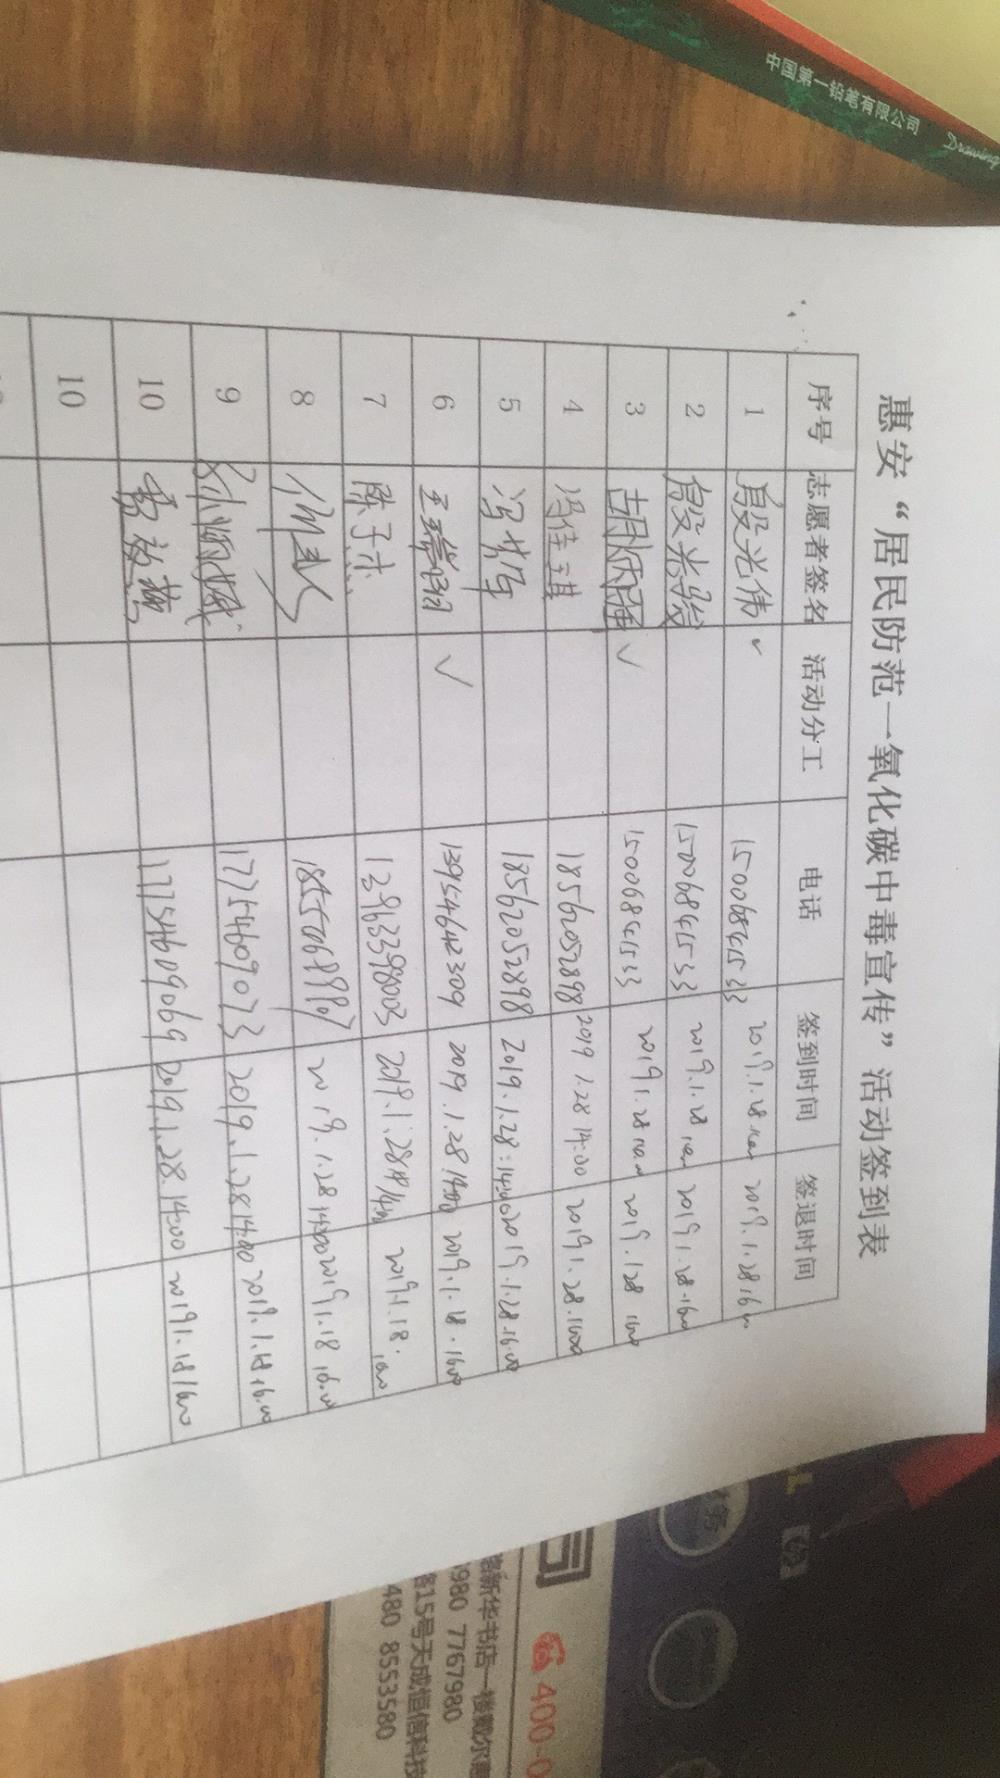 中国第一铅笔有限公司 Drawing
惠安“居民防范一氧化碳中毒宣传”活动签到表
序号 志愿者签名 活动分工 电话 签到时间 签退时间
1 殷光伟 ✓ 15006841533 2019.1.28 2019.1.28
2 殷光 15006841533 2019.1.28 2019.1.28.1600
3 胡炳 ✓ 15006841533 2019.1.28 2019.1.28 1600
4 冯佳琪 18562052898 2019 1.28 14:00 2019.1.28.1600
5 冯 18562052898 2019.1.28:14:00 2019.1.28.16:00
6 王 ✓ 13954642309 2019.1.28 14:00 2019.1.18.1600
7 陈子 13963398003 2019.1.28 2019.1.18.1600
8 2019.1.28 14:00 2019.1.18 16:00
9 孙 17754609073 2019.1.28 14:00 2019.1.18.16:00
10 17754609069 2019.1.28.14:00 2019.1.18 1600
10
司
400-0
路新华书店一楼戴尔
980 7767980
15号天成恒信科技
480 8553580